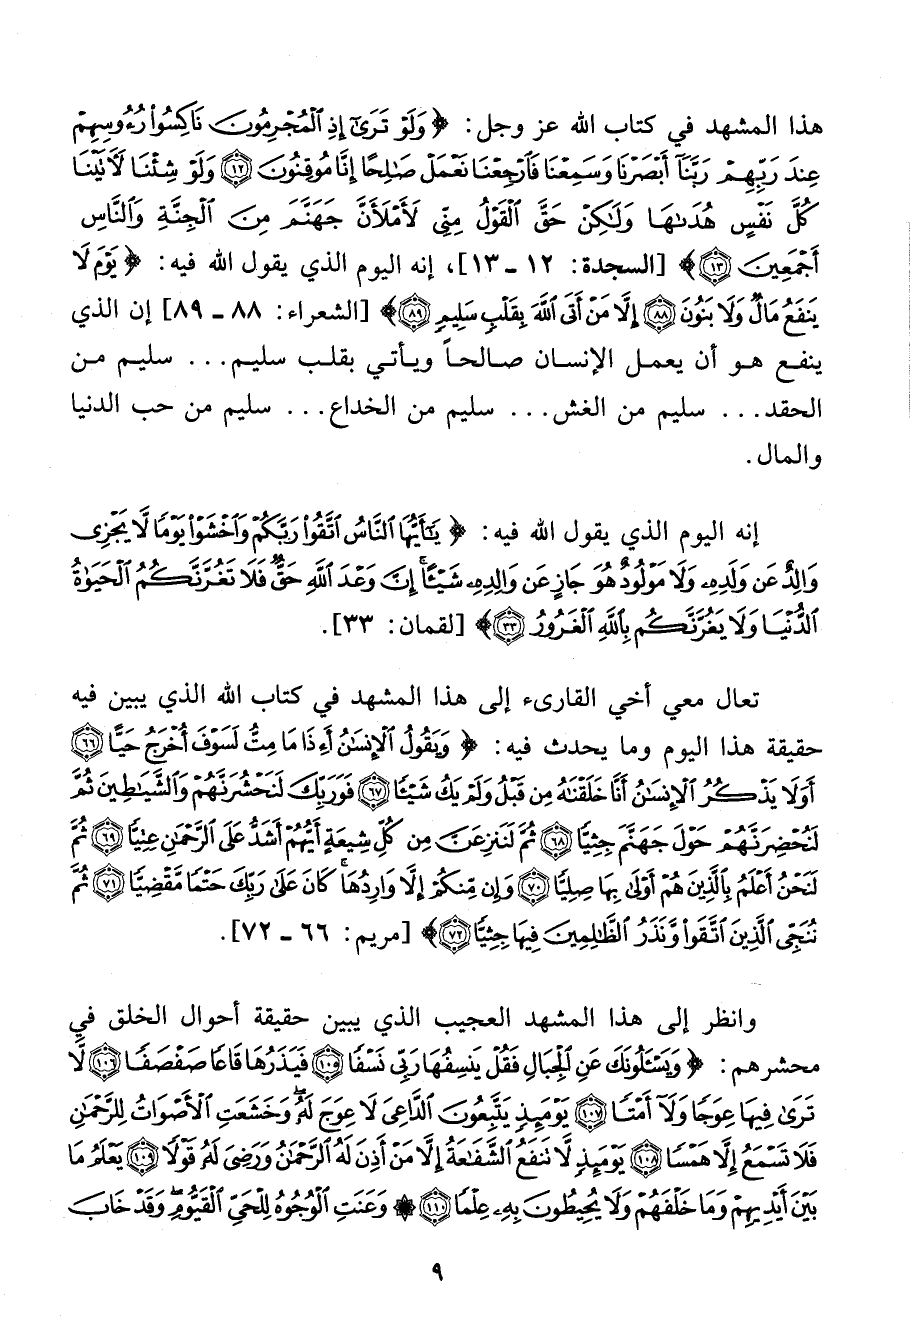 هذا المشهد في كتاب الله عز وجل: ﴿ وَلَوْ تَرَىٰٓ إِذِ ٱلْمُجْرِمُونَ نَاكِسُوا۟ رُءُوسِهِمْ
عِندَ رَبِّهِمْ رَبَّنَآ أَبْصَرْنَا وَسَمِعْنَا فَٱرْجِعْنَا نَعْمَلْ صَٰلِحًا إِنَّا مُوقِنُونَ ﴿١٢﴾ وَلَوْ شِئْنَا لَـَٔاتَيْنَا
كُلَّ نَفْسٍ هُدَىٰهَا وَلَٰكِنْ حَقَّ ٱلْقَوْلُ مِنِّى لَأَمْلَأَنَّ جَهَنَّمَ مِنَ ٱلْجِنَّةِ وَٱلنَّاسِ
أَجْمَعِينَ ﴿١٣﴾﴾ [السجدة: ١٢ ـ ١٣]، إنه اليوم الذي يقول الله فيه: ﴿ يَوْمَ لَا
يَنفَعُ مَالٌ وَلَا بَنُونَ ﴿٨٨﴾ إِلَّا مَنْ أَتَى ٱللَّهَ بِقَلْبٍ سَلِيمٍ ﴿٨٩﴾﴾ [الشعراء: ٨٨ ـ ٨٩] إن الذي
ينفع هو أن يعمل الإنسان صالحاً ويأتي بقلب سليم... سليم من
الحقد... سليم من الغش... سليم من الخداع... سليم من حب الدنيا
والمال.
إنه اليوم الذي يقول الله فيه: ﴿ يَٰٓأَيُّهَا ٱلنَّاسُ ٱتَّقُوا۟ رَبَّكُمْ وَٱخْشَوْا۟ يَوْمًا لَّا يَجْزِى
وَالِدٌ عَن وَلَدِهِۦ وَلَا مَوْلُودٌ هُوَ جَازٍ عَن وَالِدِهِۦ شَيْـًٔا ۚ إِنَّ وَعْدَ ٱللَّهِ حَقٌّ ۖ فَلَا تَغُرَّنَّكُمُ ٱلْحَيَوٰةُ
ٱلدُّنْيَا وَلَا يَغُرَّنَّكُم بِٱللَّهِ ٱلْغَرُورُ ﴿٣٣﴾﴾ [لقمان: ٣٣].
تعال معي أخي القارىء إلى هذا المشهد في كتاب الله الذي يبين فيه
حقيقة هذا اليوم وما يحدث فيه: ﴿ وَيَقُولُ ٱلْإِنسَٰنُ أَءِذَا مَا مِتُّ لَسَوْفَ أُخْرَجُ حَيًّا ﴿٦٦﴾
أَوَلَا يَذْكُرُ ٱلْإِنسَٰنُ أَنَّا خَلَقْنَٰهُ مِن قَبْلُ وَلَمْ يَكُ شَيْـًٔا ﴿٦٧﴾ فَوَرَبِّكَ لَنَحْشُرَنَّهُمْ وَٱلشَّيَٰطِينَ ثُمَّ
لَنُحْضِرَنَّهُمْ حَوْلَ جَهَنَّمَ جِثِيًّا ﴿٦٨﴾ ثُمَّ لَنَنزِعَنَّ مِن كُلِّ شِيعَةٍ أَيُّهُمْ أَشَدُّ عَلَى ٱلرَّحْمَٰنِ عِتِيًّا ﴿٦٩﴾ ثُمَّ
لَنَحْنُ أَعْلَمُ بِٱلَّذِينَ هُمْ أَوْلَىٰ بِهَا صِلِيًّا ﴿٧٠﴾ وَإِن مِّنكُمْ إِلَّا وَارِدُهَا ۚ كَانَ عَلَىٰ رَبِّكَ حَتْمًا مَّقْضِيًّا ﴿٧١﴾ ثُمَّ
نُنَجِّى ٱلَّذِينَ ٱتَّقَوا۟ وَّنَذَرُ ٱلظَّٰلِمِينَ فِيهَا جِثِيًّا ﴿٧٢﴾﴾ [مريم: ٦٦ ـ ٧٢].
وانظر إلى هذا المشهد العجيب الذي يبين حقيقة أحوال الخلق في
محشرهم: ﴿ وَيَسْـَٔلُونَكَ عَنِ ٱلْجِبَالِ فَقُلْ يَنسِفُهَا رَبِّى نَسْفًا ﴿١٠٥﴾ فَيَذَرُهَا قَاعًا صَفْصَفًا ﴿١٠٦﴾ لَّا
تَرَىٰ فِيهَا عِوَجًا وَلَآ أَمْتًا ﴿١٠٧﴾ يَوْمَئِذٍ يَتَّبِعُونَ ٱلدَّاعِىَ لَا عِوَجَ لَهُۥ ۖ وَخَشَعَتِ ٱلْأَصْوَاتُ لِلرَّحْمَٰنِ
فَلَا تَسْمَعُ إِلَّا هَمْسًا ﴿١٠٨﴾ يَوْمَئِذٍ لَّا تَنفَعُ ٱلشَّفَٰعَةُ إِلَّا مَنْ أَذِنَ لَهُ ٱلرَّحْمَٰنُ وَرَضِىَ لَهُۥ قَوْلًا ﴿١٠٩﴾ يَعْلَمُ مَا
بَيْنَ أَيْدِيهِمْ وَمَا خَلْفَهُمْ وَلَا يُحِيطُونَ بِهِۦ عِلْمًا ﴿١١٠﴾ ۞ وَعَنَتِ ٱلْوُجُوهُ لِلْحَىِّ ٱلْقَيُّومِ ۖ وَقَدْ خَابَ
٩